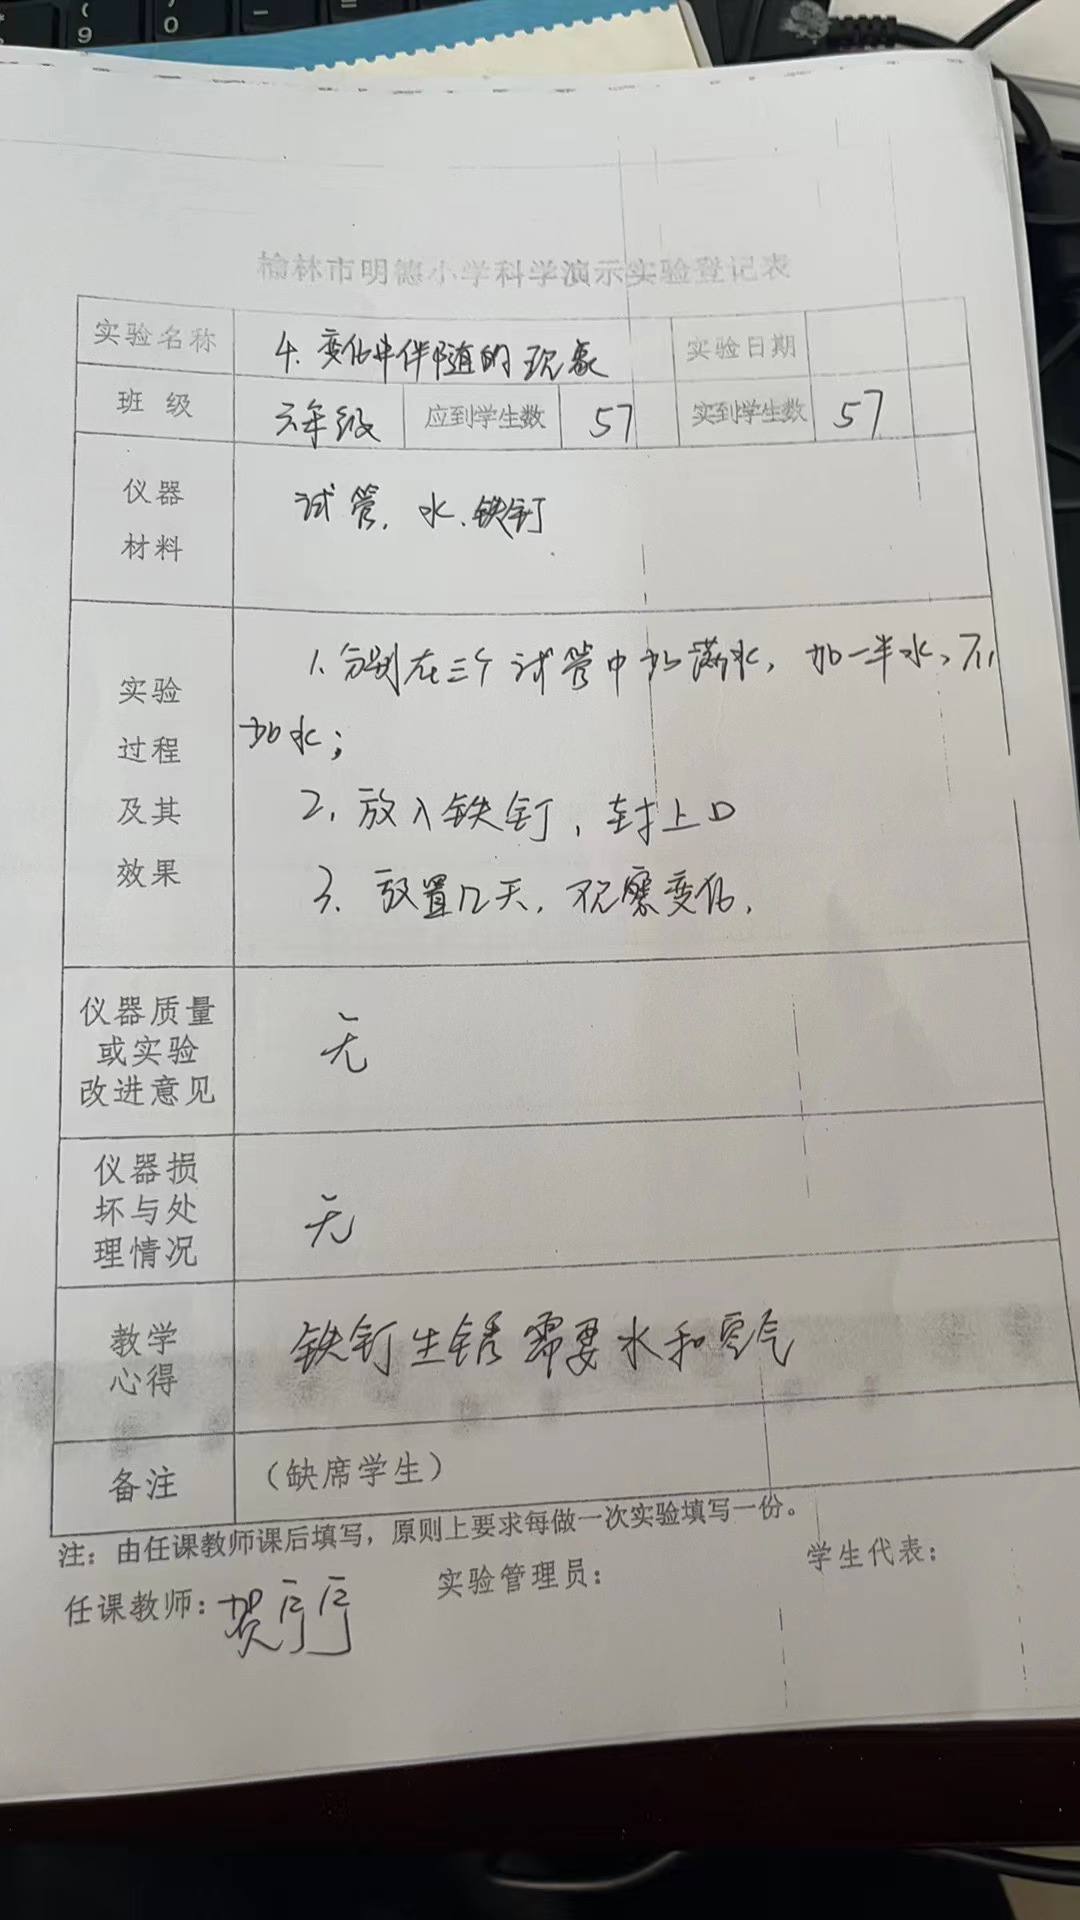 榆林市明德小学科学演示实验登记表
实验名称 4.变化中伴随的现象 实验日期
班级 六年级 应到学生数 57 实到学生数 57
仪器
材料
试管、水、铁钉
实验
过程
及其
效果
1.分别在三个试管中加满水,加一半水、不
加水;
2.放入铁钉,封上口
3.放置几天,观察变化.
仪器质量
或实验
改进意见
无
仪器损
坏与处
理情况
无
教学
心得
铁钉生锈需要水和空气
备注 (缺席学生)
注:由任课教师课后填写,原则上要求每做一次实验填写一份。
任课教师: 贺 实验管理员: 学生代表: